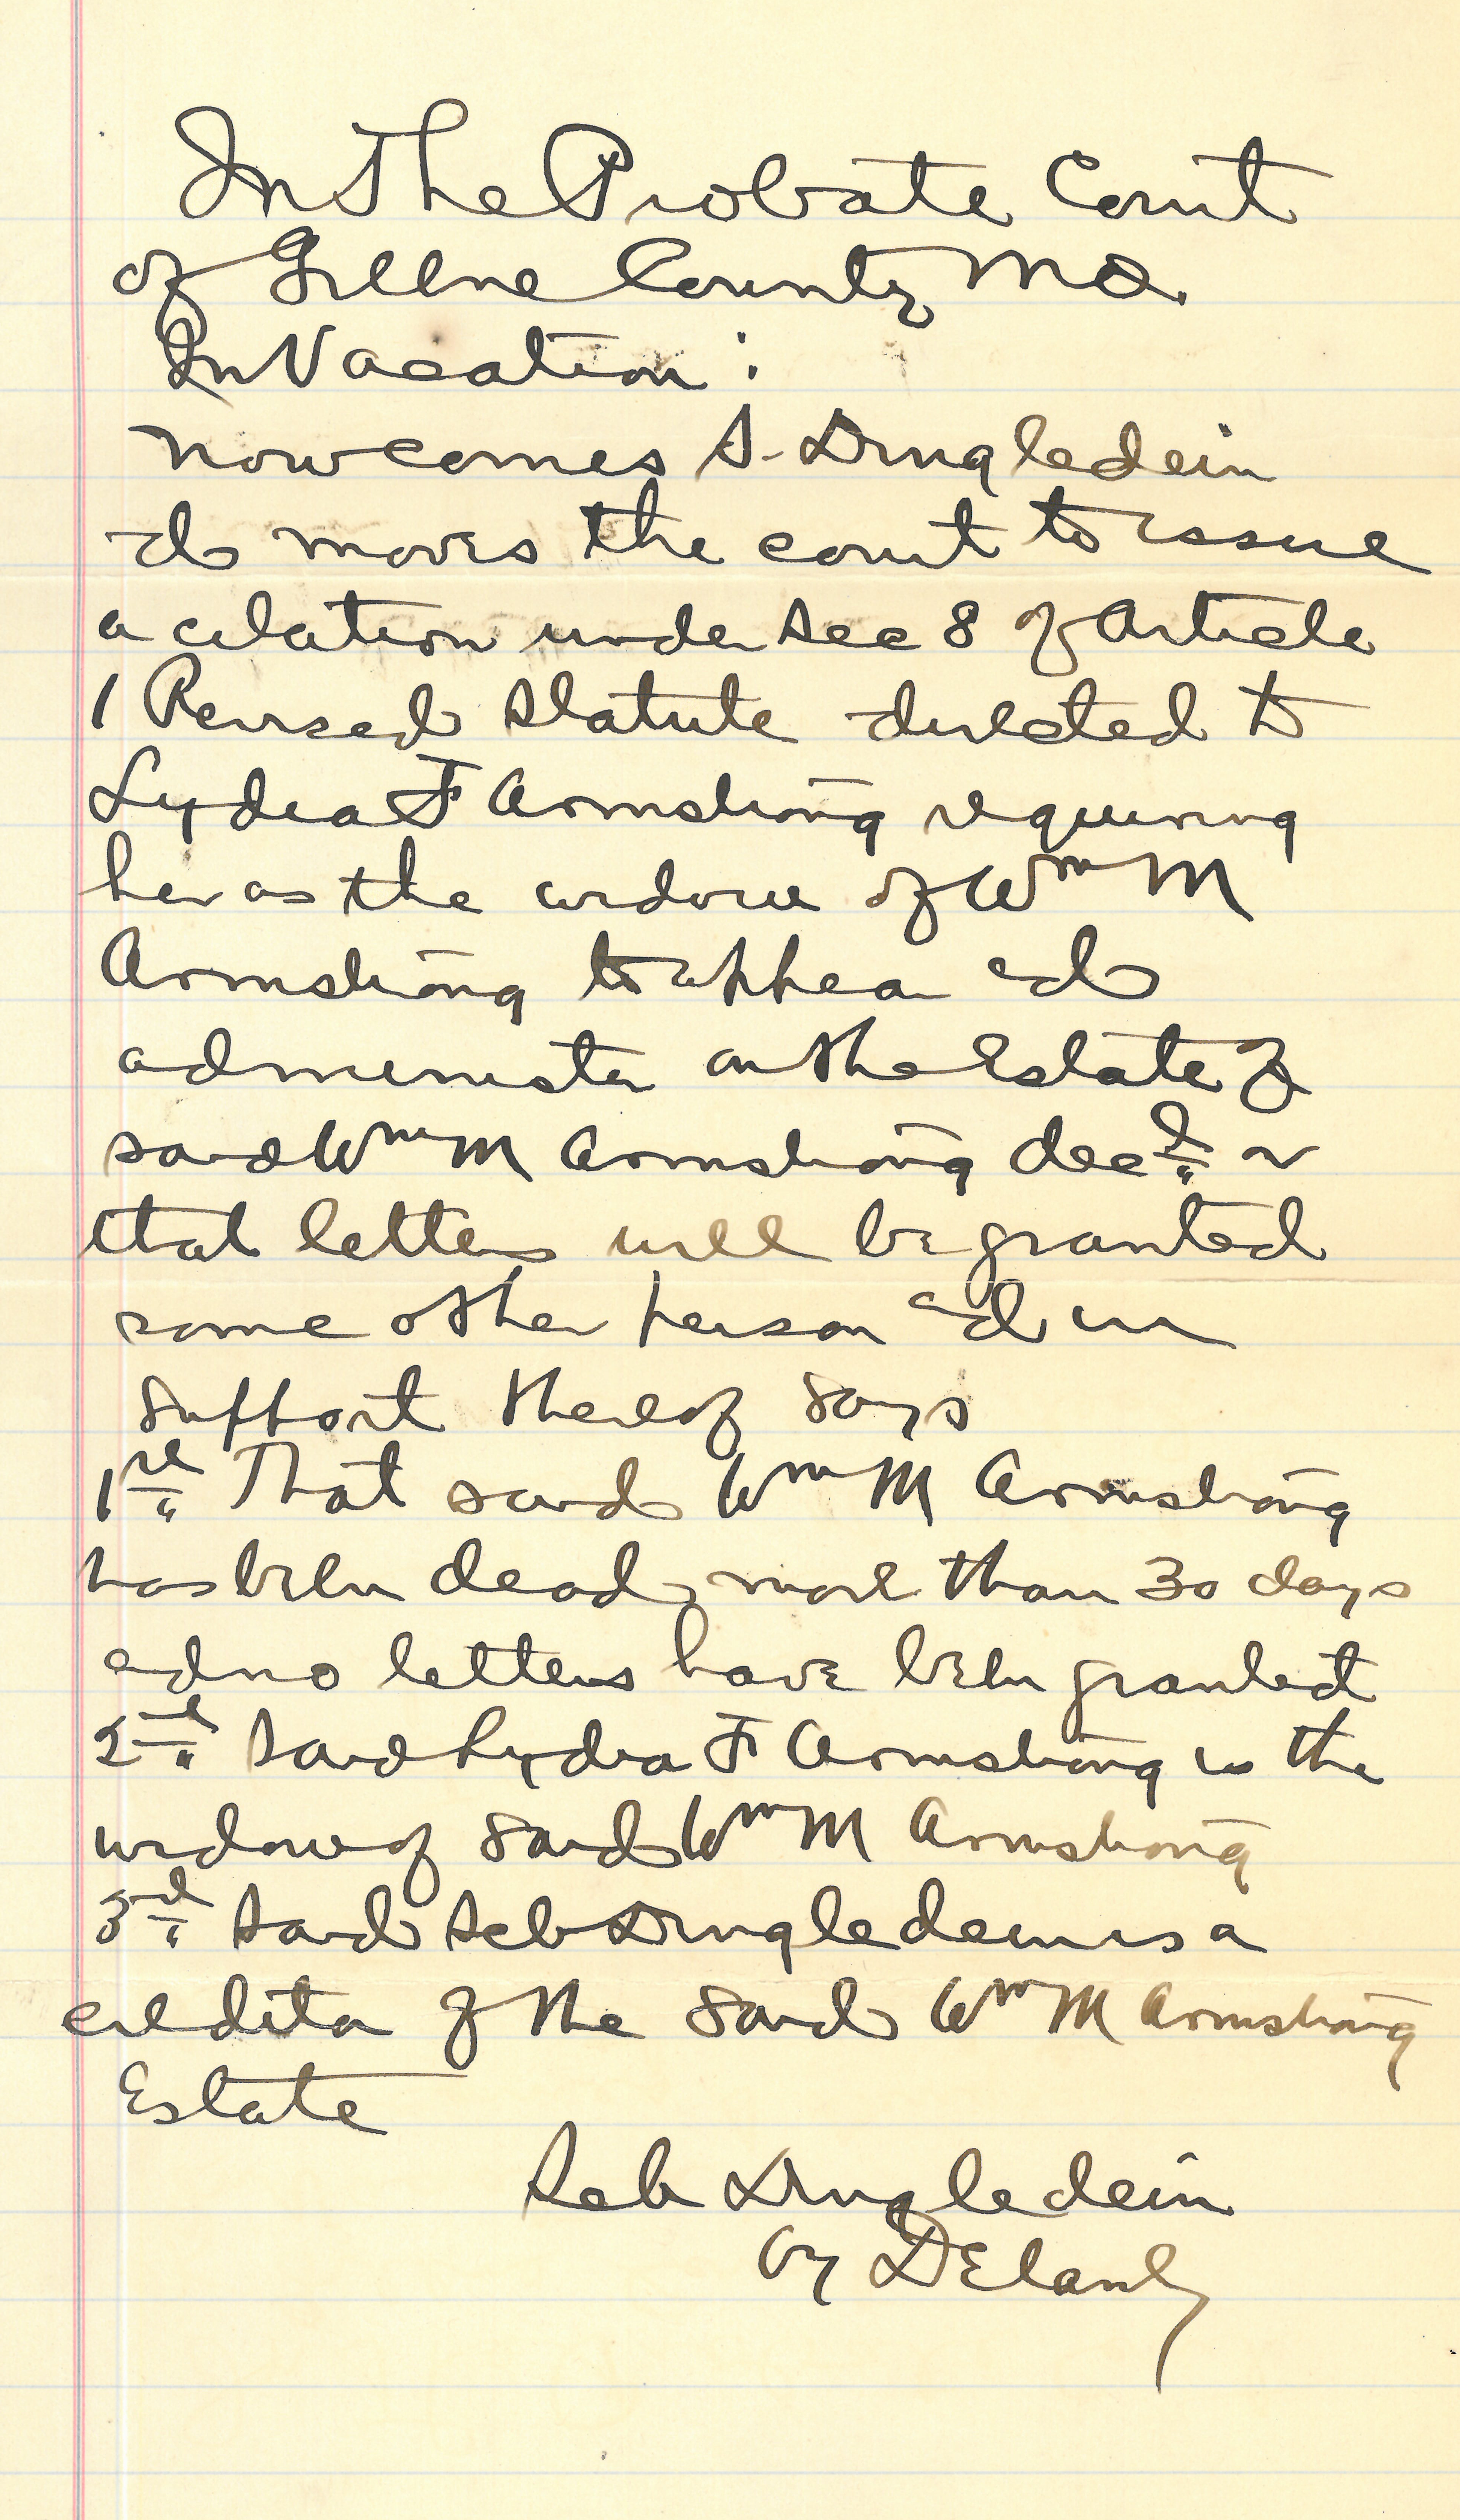 In The Probate Court
of Greene County Mo.
In Vacation :
now comes S. Dingledein
and moves the court to issue
a citation under Sec 8 of Article
1 Revised Statute directed to
Lydia F Armstrong requiring
her as the widow of Wm M
Armstrong to appear and
administer on the Estate of
said Wm M Armstrong decd or
that letters will be granted
some other person and in
support thereof says
1st That said Wm M Armstrong
has been dead more than 30 days
and no letters have been granted
2nd Said Lydia F Armstrong is the
widow of said Wm M Armstrong
3rd Said Seb Dingledein is a
creditor of the said Wm M Armstrong
Estate
Seb Dingledein
by Delany